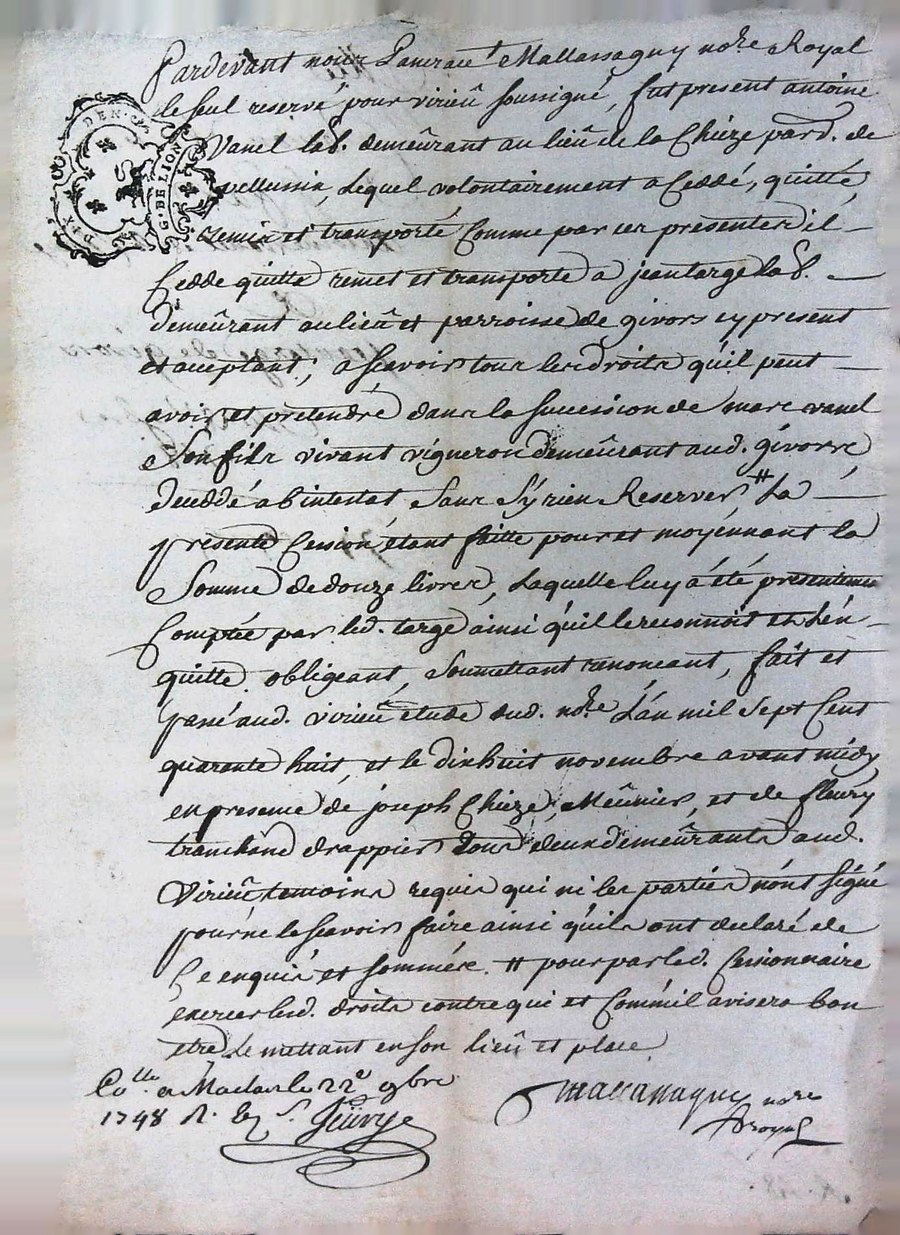 Pardevant nous Mallassagny no.re Royal
le seul reservé pour virieû soussigné, fut present antoine
Vanel lab. demeûrant au lieû de la Chieze par.d. de
pellussin, Lequel volontairement a Ceddé, quitté,
remis et transporté Comme par ces presentes il
Cedde quitte remet et transporte a jean targe lab.
demeûrant au lieû et parroisse de givors cy present
et aceptant; a scavoir tous les droits qu'il peut
avoir et pretendre dans la succession de marc vanel
Son fils vivant vigneron demeûrant aud. givors
deceddé ab intestat Sans S'y rien Reserver # La
presente Cession étant faitte pour et moyénnant la
Somme de douze livres, Laquelle luy a été presentemt
Comptée par led. targe ainsi qu'il le reconnoit et L'én
quitte. obligeant, Soumettant renoncant, fait et
passé aud. virieû étude dud. no.re L'án mil Sept Cent
quarente huit, et le dixhuit novembre avant midy
en presence de joseph Chieze, Meûnier, et de fleury
tranchand drappier tous deux demeûrants aud.
Virieû temoins requis qui ni les parties n'ónt signé
pour ne le scavoir faire ainsi qu'ils ont declaré de
Ce enquis et sommés. # pour par led. Cessionnaire
éxercer lesd. droits contre qui et Comm'il avisera bon
étre Le mettant en son lieû et place.
Co.lle a Maclas le 22e 9bre
1748 R.
Mallassagny no.re
Royal
DEN.
DIX
G. DE LION